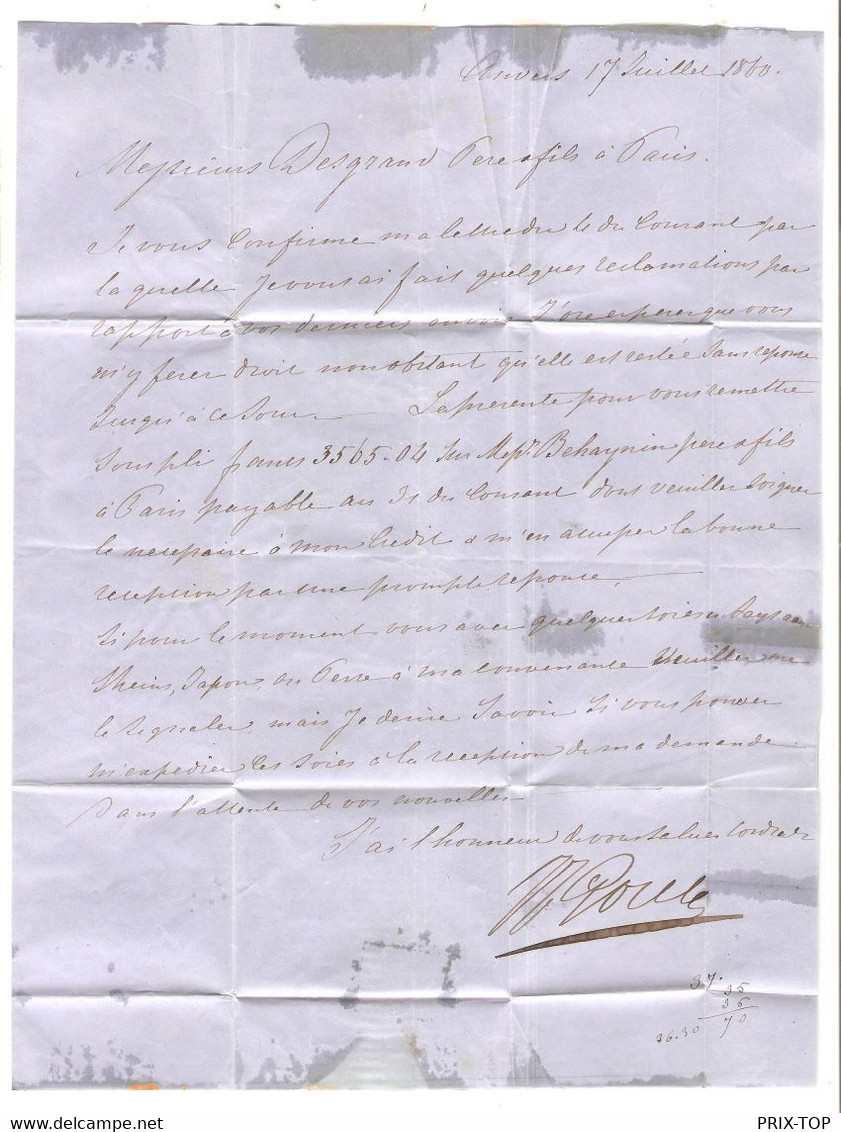 Anvers 17 Juillet 1860.
Messieurs Desgrand Pere & fils à Paris.
Je vous Confirme ma lettre du du Courant par
la quelle Je vous ai fait quelques reclamations par
rapport à vos derniers envois J'ose esperer que vous
m'y ferer droit nonobstant qu'elle est restée Sans reponse
Jusqu'à ce Jour. — La presente pour vous remettre
Sous pli francs 3565-04 Sur Messrs. Behaynin pere & fils
à Paris payable au 31 du Courant dont veuiller Soigner
le necessaire à mon Crédit & m'en accuser la bonne
reception par une prompte reponse.
Si pour le moment vous aver quelques Soies
Japon, ou Perse à ma convenance Veuiller me
le Signaler, mais Je desire Savoir Si vous pouver
m'expedier les Soies à la reception de ma demande
Dans l'attente de vos nouvelles
J'ai l'honneur de vous Saluer
37.
35
35
36.30 70
PRIX-TOP
www.delcampe.net